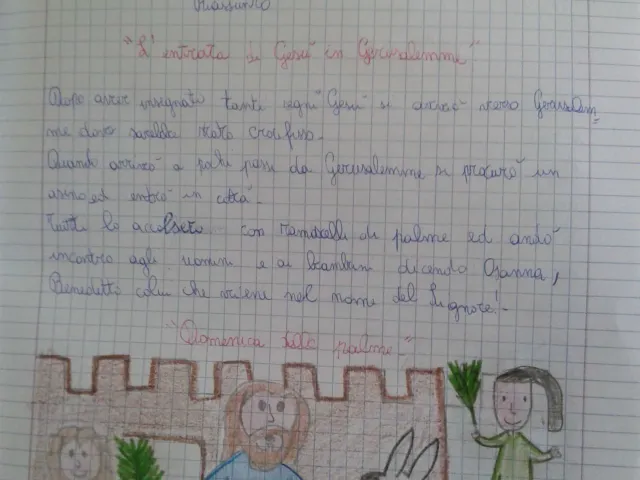 Riassunto
"L'entrata di Gesù in Gerusalemme"
Dopo aver insegnato tante "Gesù" si verso Gerusalem=
me dove sarebbe stato crocifisso.
Quando arrivò a pochi passi da Gerusalemme si procurò un
asino ed entrò in città.
Tutti lo con ramoscelli di palme ed andò
incontro agli uomini e ai bambini dicendo Osanna,
Benedetto colui che viene nel nome del Signore!-
"Domenica delle palme"